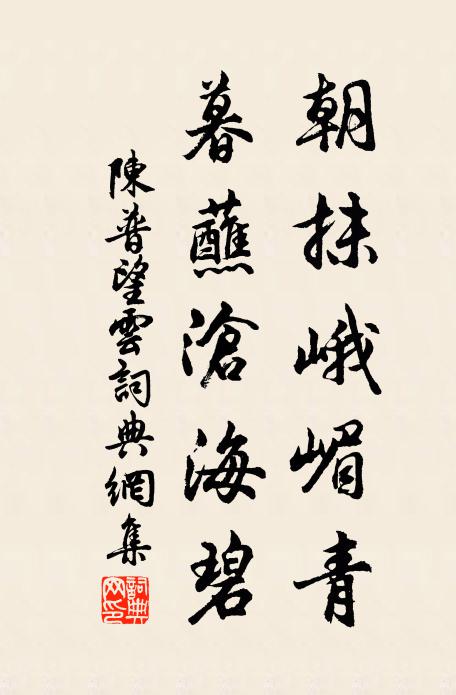 朝抹峨嵋青
暮蘸滄海碧
陳普望雲詞典網集
詞典網印